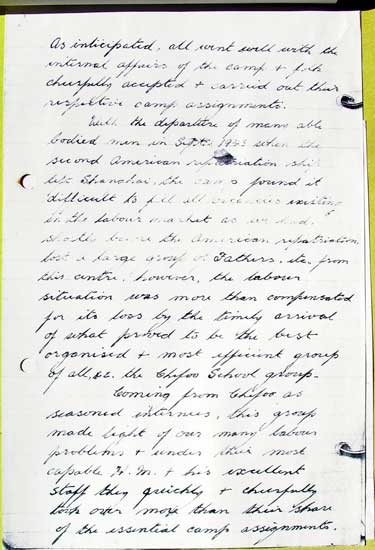 As inticipated, all went well with the
internal affairs of the camp & folk
cheerfully accepted & carried out their
respective camp assignments.
With the departure of many able
bodied men in Sept. 1943 when the
second American repatriation ship
left Shanghai, the camp found it
difficult to fill all vacancies existing
in the labour market as we had,
shortly before the American repatriation,
lost a large group of Fathers, etc. from
this centre; however, the labour
situation was more than compensated
for its loss by the timely arrival
of what proved to be the best
organised & most efficient group
of all, the Chefoo School group.
Coming from Chefoo as
seasoned internees, this group
made light of our many labour
problems & under their most
capable H. M. & his excellent
staff they quickly & cheerfully
took over more than their share
of the essential camp assignments.